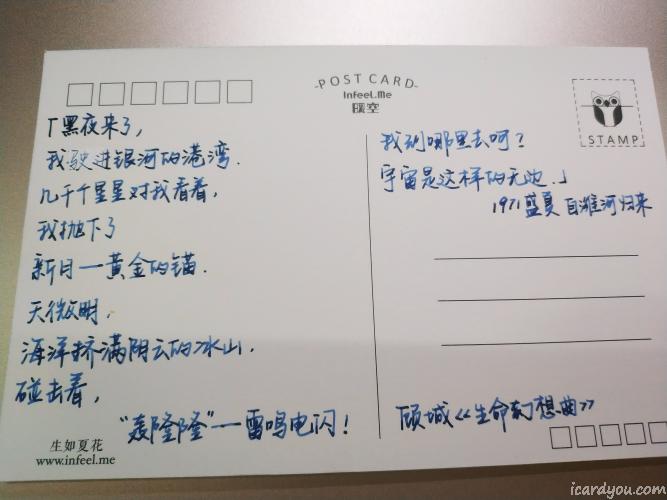 POST CARD
Infeel.Me
暖空
STAMP
「黑夜来了,
我驶进银河的港湾.
几千个星星对我看着,
我抛下了
新月—黄金的锚.
天微明,
海洋挤满阴云的冰山,
碰击着,
“轰隆隆”—雷鸣电闪!
我到哪里去呵?
宇宙是这样的无边.」
1971盛夏 自潍河归来
顾城《生命幻想曲》
生如夏花
www.infeel.me
icardyou.com